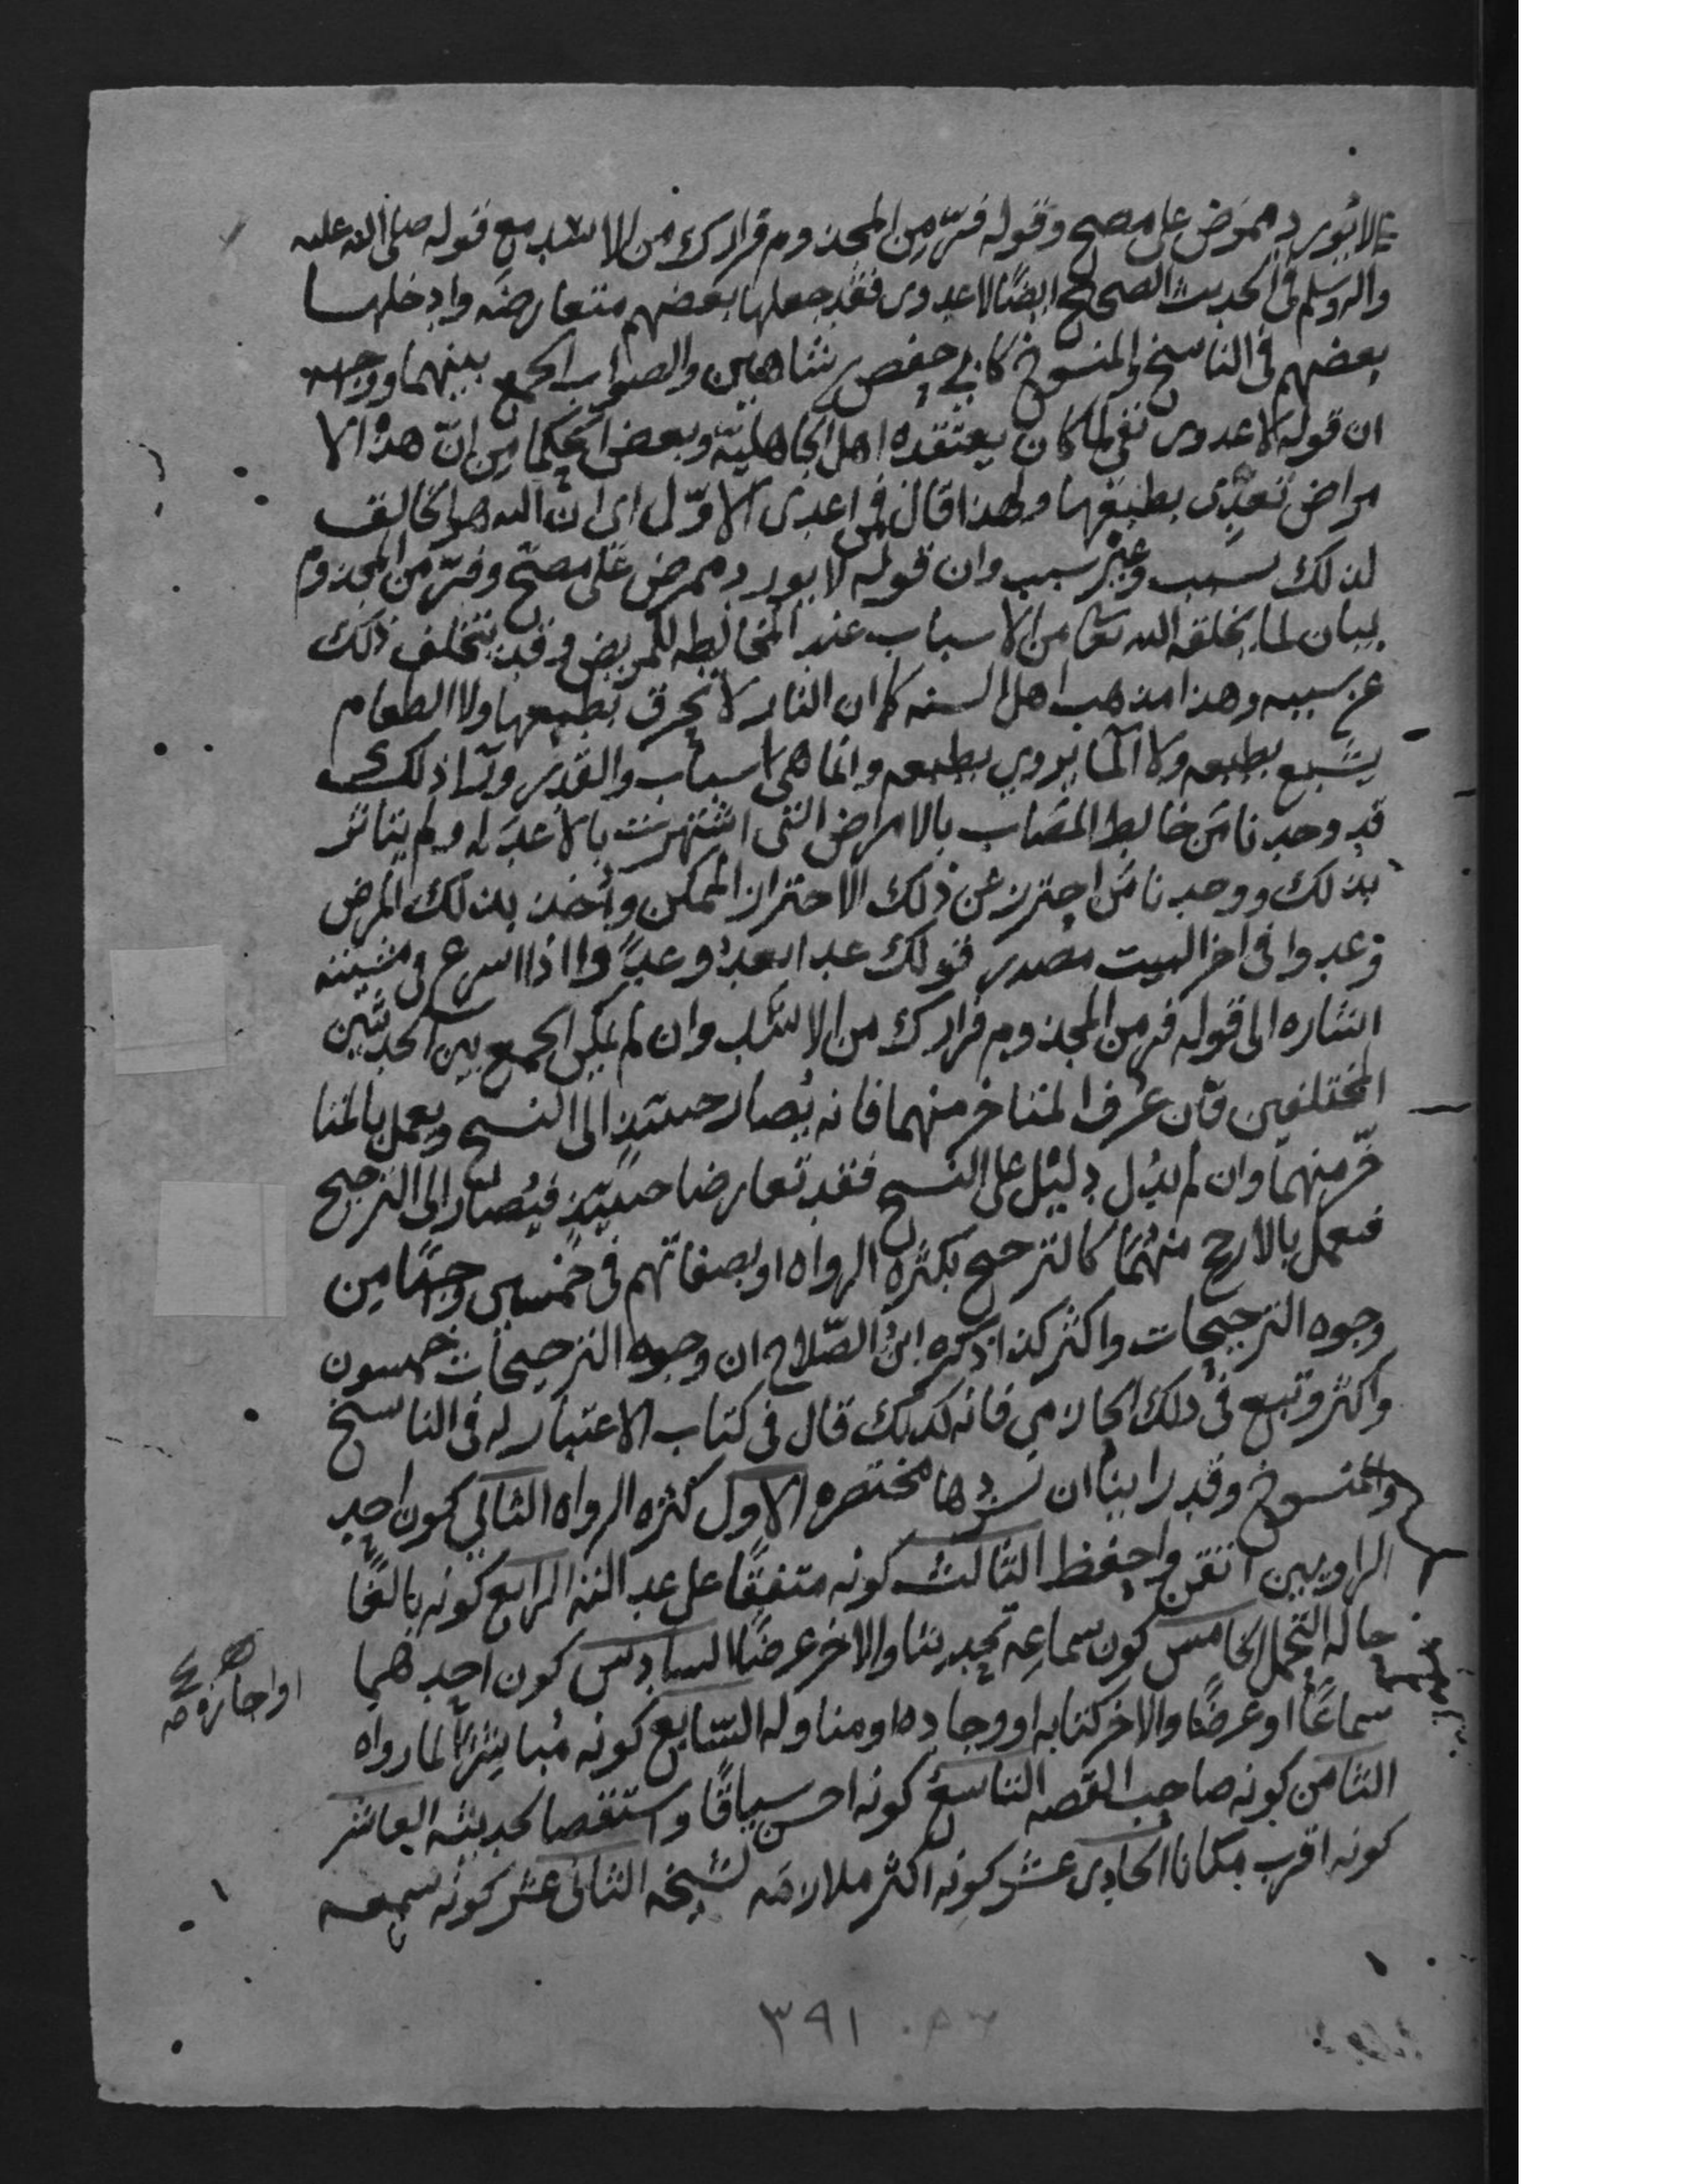 لا يورد ممرض على مصح وقوله فرّ من المجذوم فرارك من الاسد مع قوله صلى الله عليه
واله وسلم في الحديث الصحيح ايضًا لا عدوى فقد جعلها بعضهم متعارضه وادخلها
بعضهم في الناسخ والمنسوخ كابي حفص بن شاهين والصواب الجمع بينهما ووجهه
ان قوله لا عدوى نفي لما كان يعتقده اهل الجاهليّة وبعض الحكما من انّ هذه الا
مراض تعدّى بطبعها ولهذا قال فمن اعدى الاوّل اي ان الله هو الخالق
لذلك بسبب وغير سبب وان قوله لا يورد ممرض على مصحّ وفرّ من المجذوم
بيان لما يخلقه الله تعا من الاسباب عند المخالطه للمريض وقد يتخلف ذلك
عن سببه وهذا مذهب اهل السنه كما ان النار لا تحرق بطبعها ولا الطعام
يشبع بطبعه ولا الما يروي بطبعه وانما هي اسباب والقدر ورا ذلك
قد وجدنا من خالط المصاب بالامراض التي اشتهرت بالاعدا ولم يتاثر
بذلك ووجدنا من احترز عن ذلك الاحتراز الممكن واخذ بذلك المرض
وعدوا في اخر البيت مصدر قولك عدا يعدو عدوًا اذا اسرع في مشيته
اشاره الى قوله فر من المجذوم فرارك من الاسد وان لم يمكن الجمع بين الحديثين
المختلفين فان عرف المتاخر منهما فانه يُصار حينئذ الى النسخ ويعمل بالمتا
خّر منهما وان لم يدل دليل على النسخ فقد تعارضا حينئذ فيُصار الى الترجيح
فيعمل بالارجح منهما كالترجيح بكثره الرواه او بصفاتهم في خمسين وجهًا من
وجوه الترجيحات واكثر كذا ذكره ابن الصّلاح ان وجوه الترجيحات خمسون
واكثر وتبع في ذلك الحازمي فانه كذلك قال في كتاب الاعتبار له في الناسخ
والمنسوخ وقد راينا ان نسردها مختصره الاول كثره الرواه الثاني كون احد
الراويين اتقن واحفظ الثالث كونه متفقًا على عدالته الرابع كونه بالغًا
حاله التحمل الخامس كون سماعه تحديثا والاخر عرضًا السادس كون احدهما
سماعًا او عرضًا والاخر كتابه او وجاده او مناوله السّابع كونه مُباشرًا لما رواه
الثامن كونه صاحب القصه التاسع كونه احسن سياقًا واستقصا لحديثه العاشر
كونه اقرب مكانا الحادي عشر كونه اكثر ملازمه لشيخه الثاني عشر كونه سمعه
او اجازه صح
٣٩١